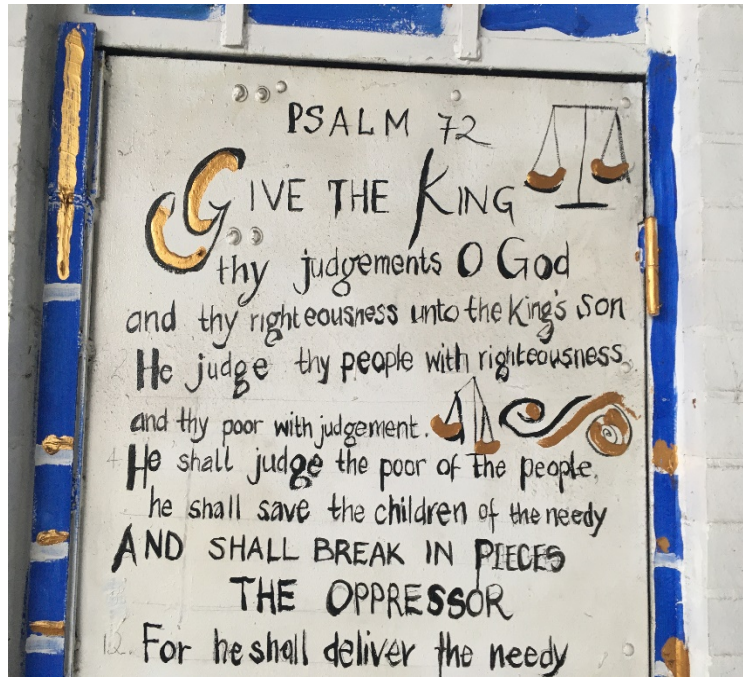 PSALM 72
GIVE THE KING
thy judgements O God
and thy righteousness unto the King's Son
He judge thy people with righteousness
and thy poor with judgement.
4 He shall judge the poor of the people,
he shall save the children of the needy
AND SHALL BREAK IN PIECES
THE OPPRESSOR
12. For he shall deliver the needy